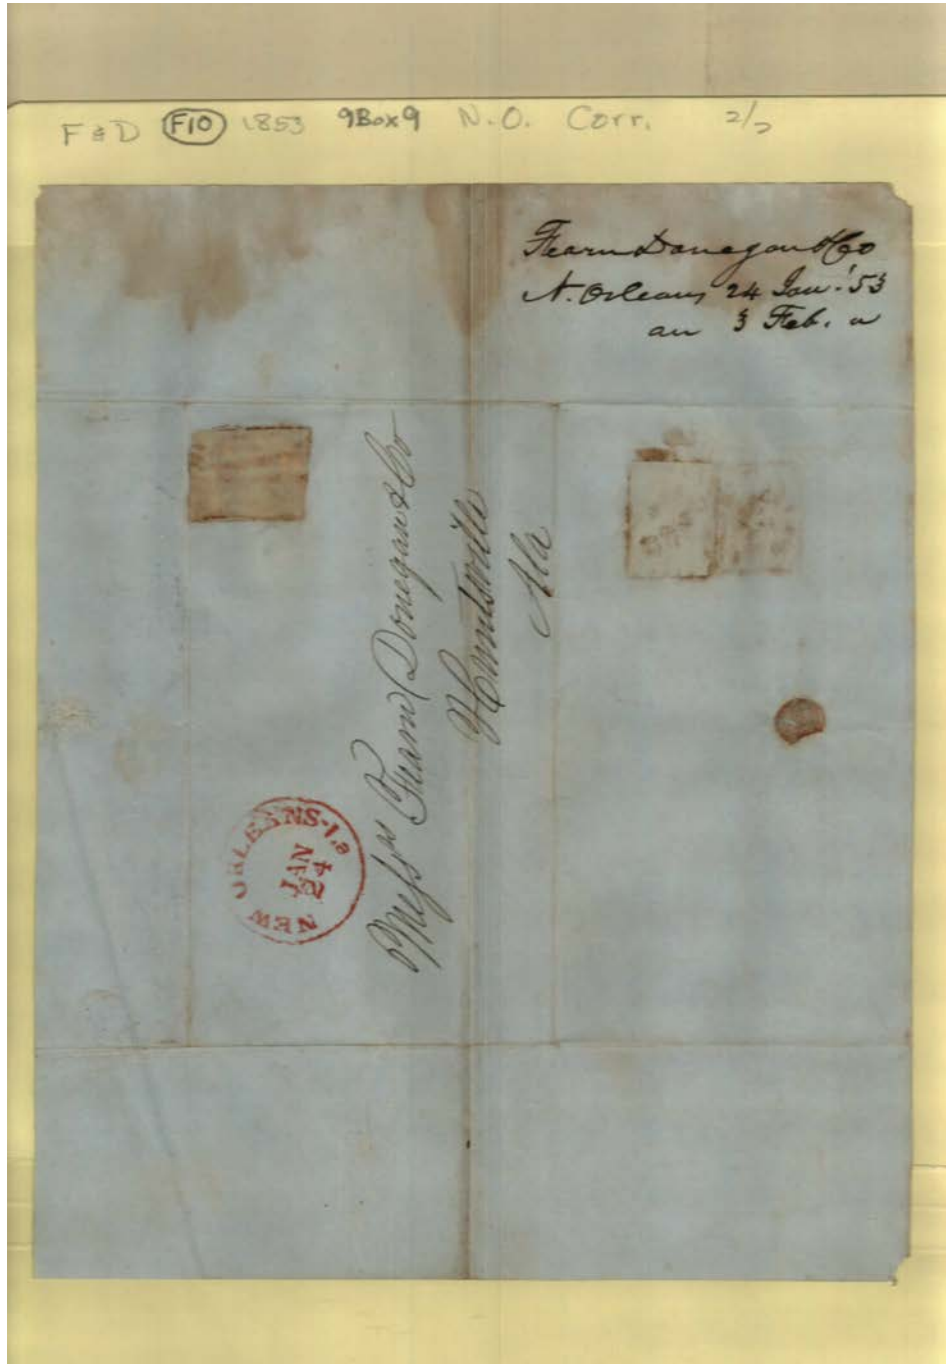 F & D F10 1853 9Box9 N.O. Corr. 2/2
Fearn Donegan & Co
N. Orleans 24 Jan. '53
an 3 Feb. "
Messrs Fearn Donegan & Co
Huntsville
Ala
NEW ORLEANS-La
JAN
24